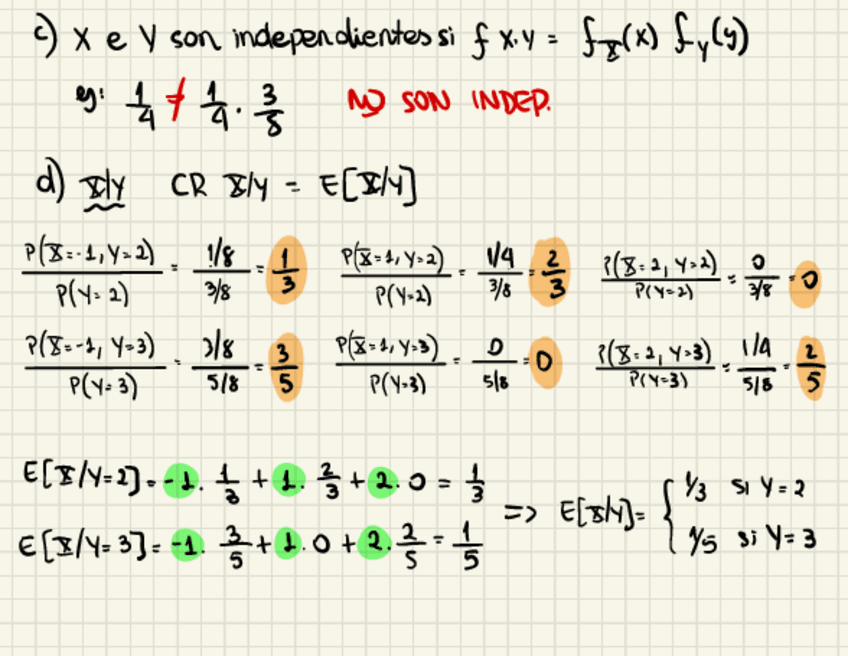 c) X e Y son independientes si f X.Y = f_X(x) f_Y(y)
ej: 1/4 ≠ 1/4 · 3/8 NO SON INDEP.
d) X/Y CR X/Y = E[X/Y]
P(X=-1, Y=2)/P(Y=2) = 1/8 / 3/8 = 1/3 P(X=1, Y=2)/P(Y=2) = 1/4 / 3/8 = 2/3 P(X=2, Y=2)/P(Y=2) = 0 / 3/8 = 0
P(X=-1, Y=3)/P(Y=3) = 3/8 / 5/8 = 3/5 P(X=1, Y=3)/P(Y=3) = 0 / 5/8 = 0 P(X=2, Y=3)/P(Y=3) = 1/4 / 5/8 = 2/5
E[X/Y=2] = -1 · 1/3 + 1 · 2/3 + 2 · 0 = 1/3
E[X/Y=3] = -1 · 3/5 + 1 · 0 + 2 · 2/5 = 1/5
=> E[X/Y] = { 1/3 si Y=2
1/5 si Y=3